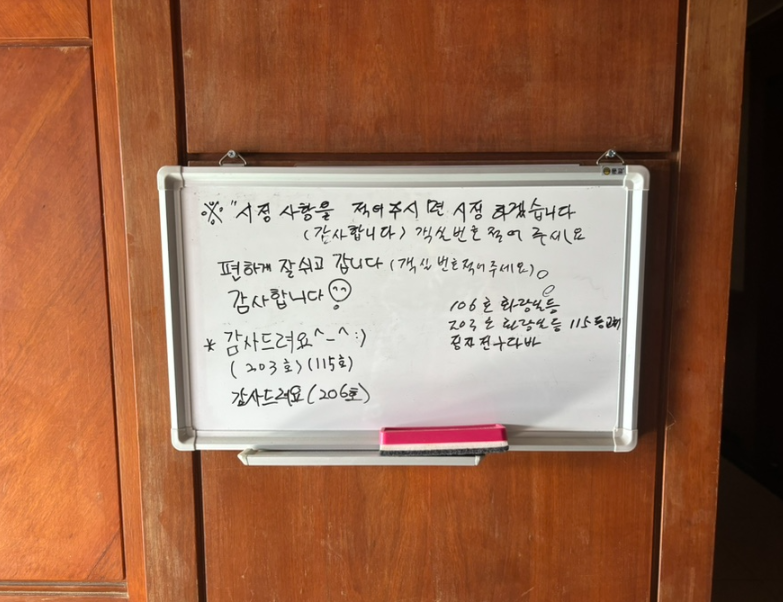 ※ "시정 사항을 적어주시면 시정 하겠습니다
(감사합니다) 객실번호 적어 주세요
편하게 잘쉬고 갑니다 (객실 번호적어주세요)
감사합니다
* 감사드려요^-^ :)
(203호) (115호)
감사드려요 (206호)
106호 화장실등
203호 화장실등 115